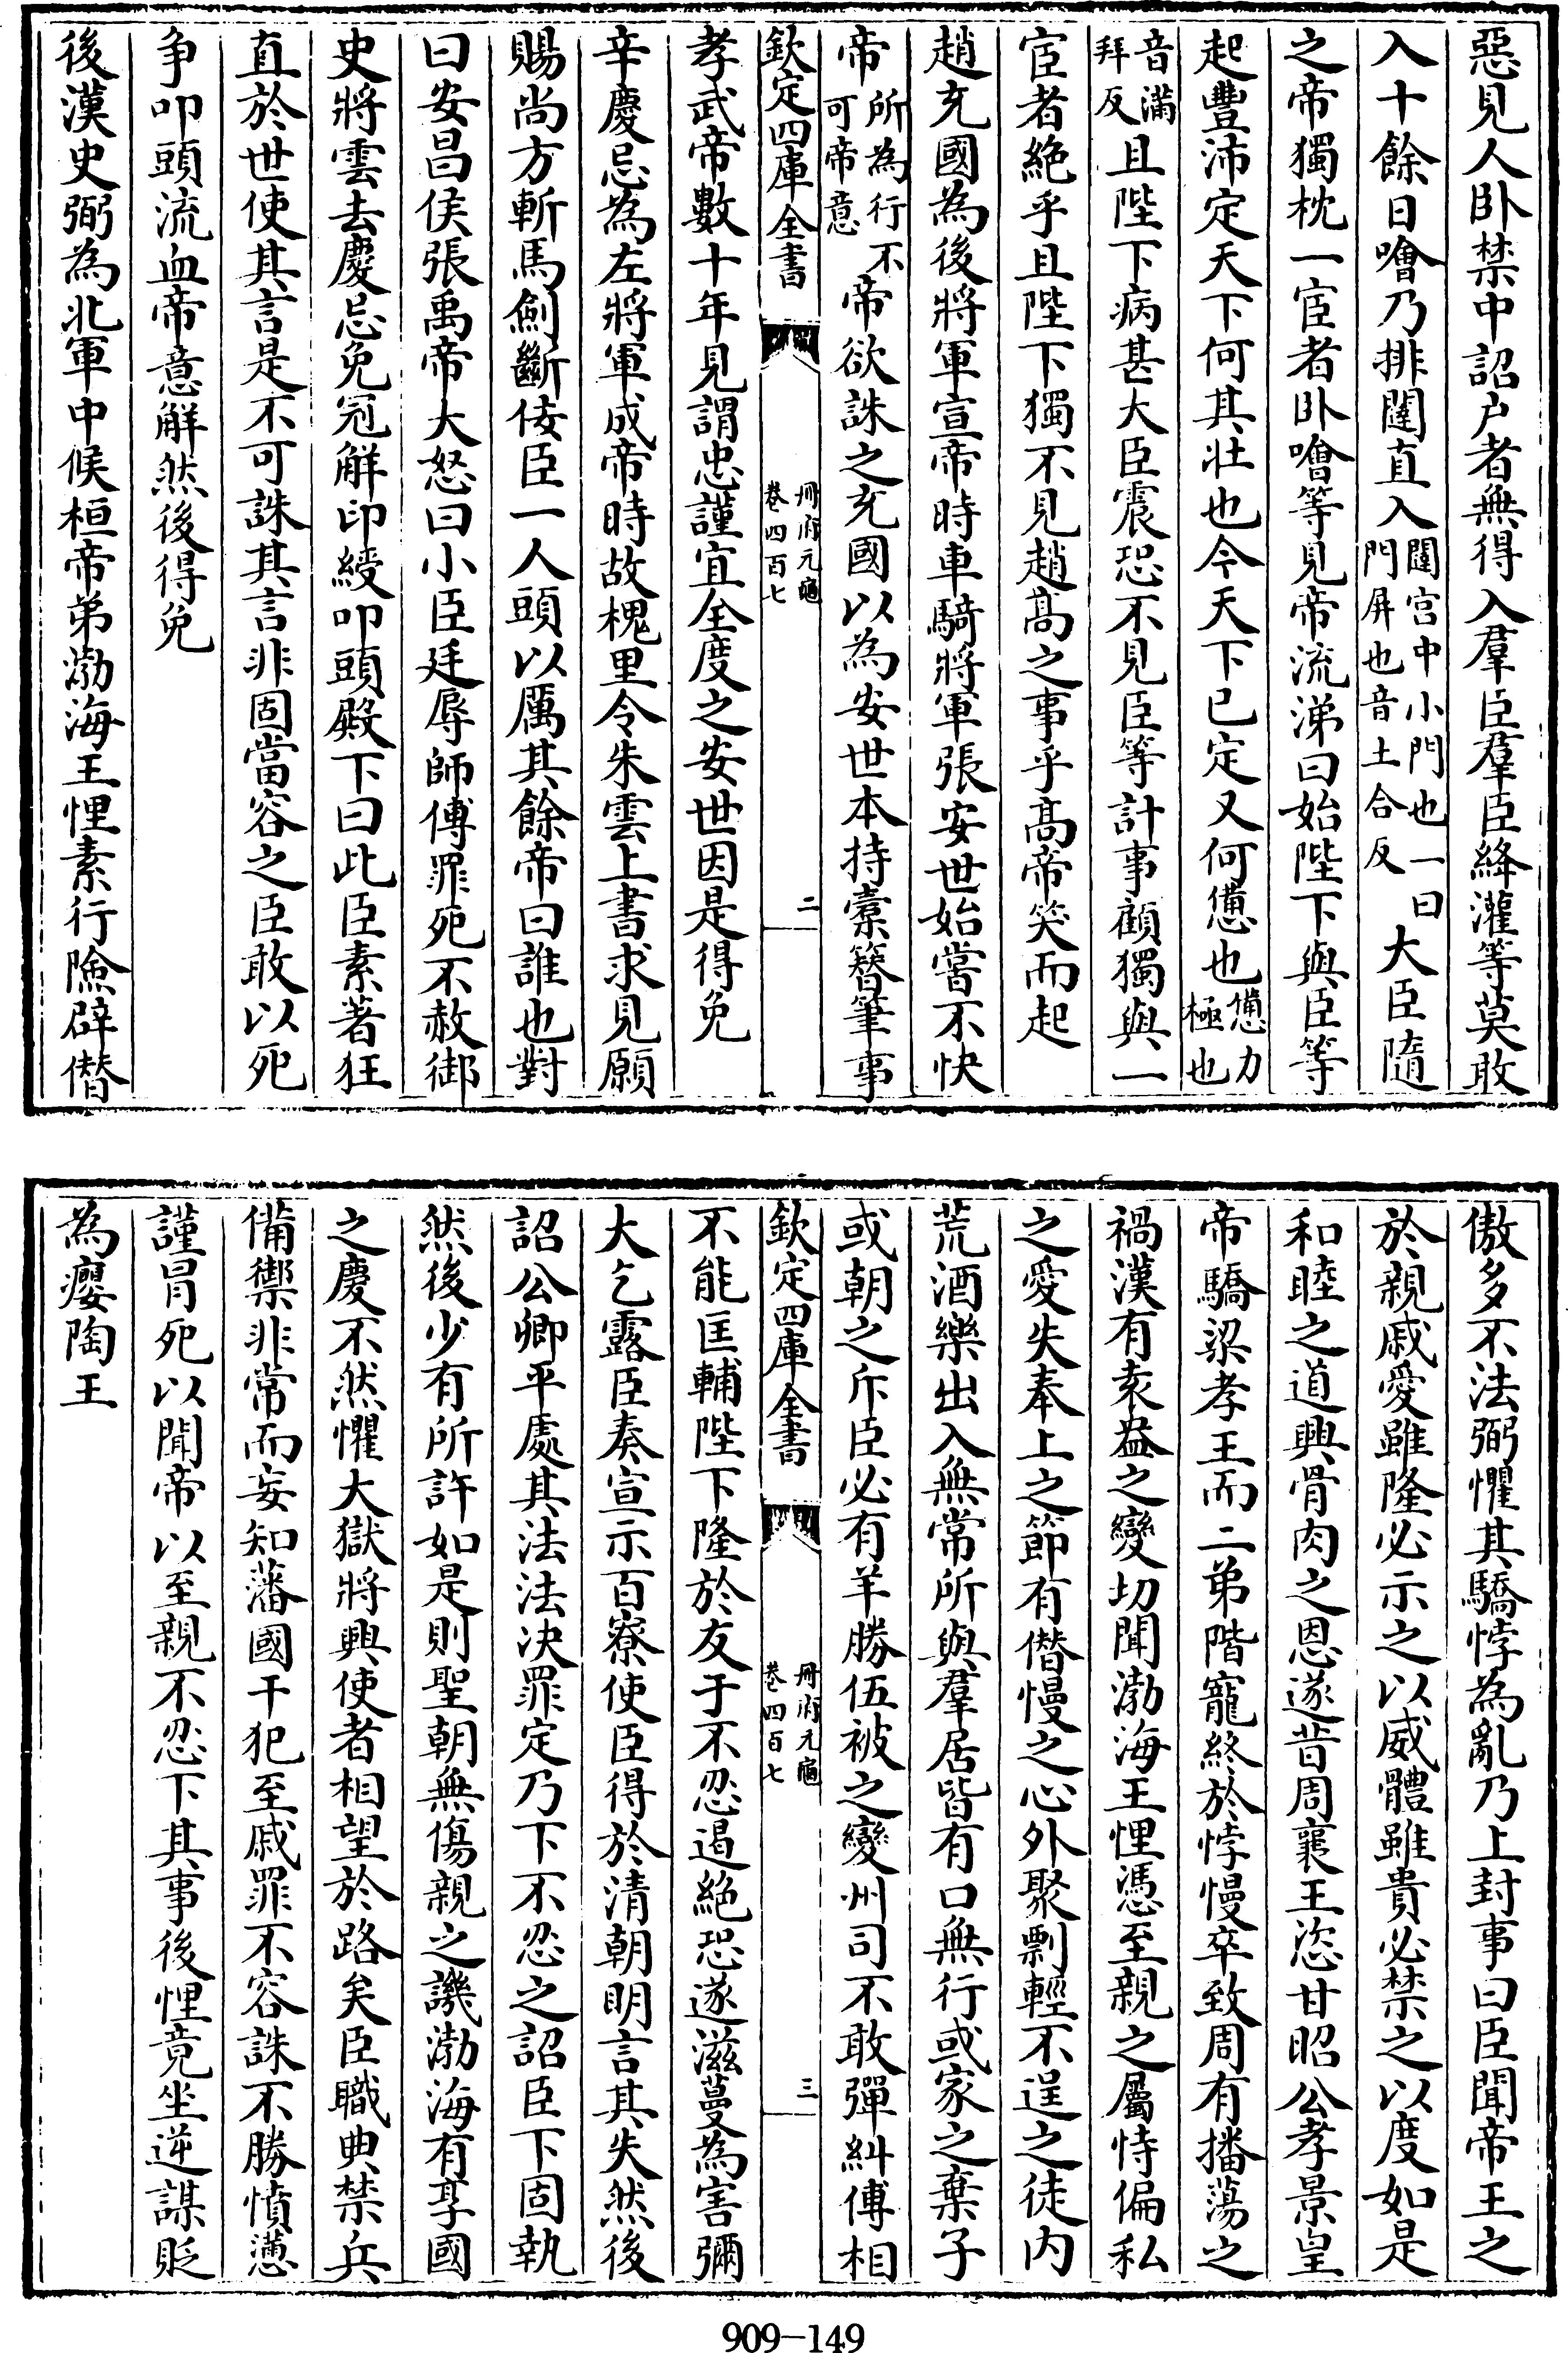 惡見人卧禁中詔户者無得入羣臣羣臣絳灌等莫敢
入十餘日噲乃排闥直入闥宫中小門也一曰門屏也音土合反大臣隨
之帝獨枕一宦者卧噲等見帝流涕曰始陛下與臣等
起豐沛定天下何其壯也今天下已定又何憊也憊力極也
音滿拜反且陛下病甚大臣震恐不見臣等計事顧獨與一
宦者絶乎且陛下獨不見趙髙之事乎髙帝笑而起
趙充國為後將軍宣帝時車騎將軍張安世始嘗不快
帝所為行不可帝意帝欲誅之充國以為安世本持槖簪筆事
欽定四庫全書 冊府元龜 卷四百七 二
孝武帝數十年見謂忠謹宜全度之安世因是得免
辛慶忌為左將軍成帝時故槐里令朱雲上書求見願
賜尚方斬馬劍斷佞臣一人頭以厲其餘帝曰誰也對
曰安昌侯張禹帝大怒曰小臣廷辱師傅罪死不赦御
史將雲去慶忌免冠解印綬叩頭殿下曰此臣素著狂
直於世使其言是不可誅其言非固當容之臣敢以死
争叩頭流血帝意解然後得免
後漢史弼為北軍中候桓帝弟渤海王悝素行險辟僭
傲多不法弼懼其驕悖為亂乃上封事曰臣聞帝王之
於親戚愛雖隆必示之以威體雖貴必禁之以度如是
和睦之道興骨肉之恩遂昔周襄王恣甘昭公孝景皇
帝驕梁孝王而二弟階寵終於悖慢卒致周有播蕩之
禍漢有袁盎之變切聞渤海王悝憑至親之屬恃偏私
之愛失奉上之節有僭慢之心外聚剽輕不逞之徒内
荒酒樂出入無常所與羣居皆有口無行或家之棄子
或朝之斥臣必有羊勝伍被之變州司不敢彈糾傅相
欽定四庫全書 冊府元龜 卷四百七 三
不能匡輔陛下隆於友于不忍遏絶恐遂滋蔓為害彌
大乞露臣奏宣示百寮使臣得於清朝明言其失然後
詔公卿平處其法法决罪定乃下不忍之詔臣下固執
然後少有所許如是則聖朝無傷親之譏渤海有享國
之慶不然懼大獄將興使者相望於路矣臣職典禁兵
備禦非常而妄知藩國干犯至戚罪不容誅不勝憤懣
謹冒死以聞帝以至親不忍下其事後悝竟坐逆謀貶
為癭陶王
909-149